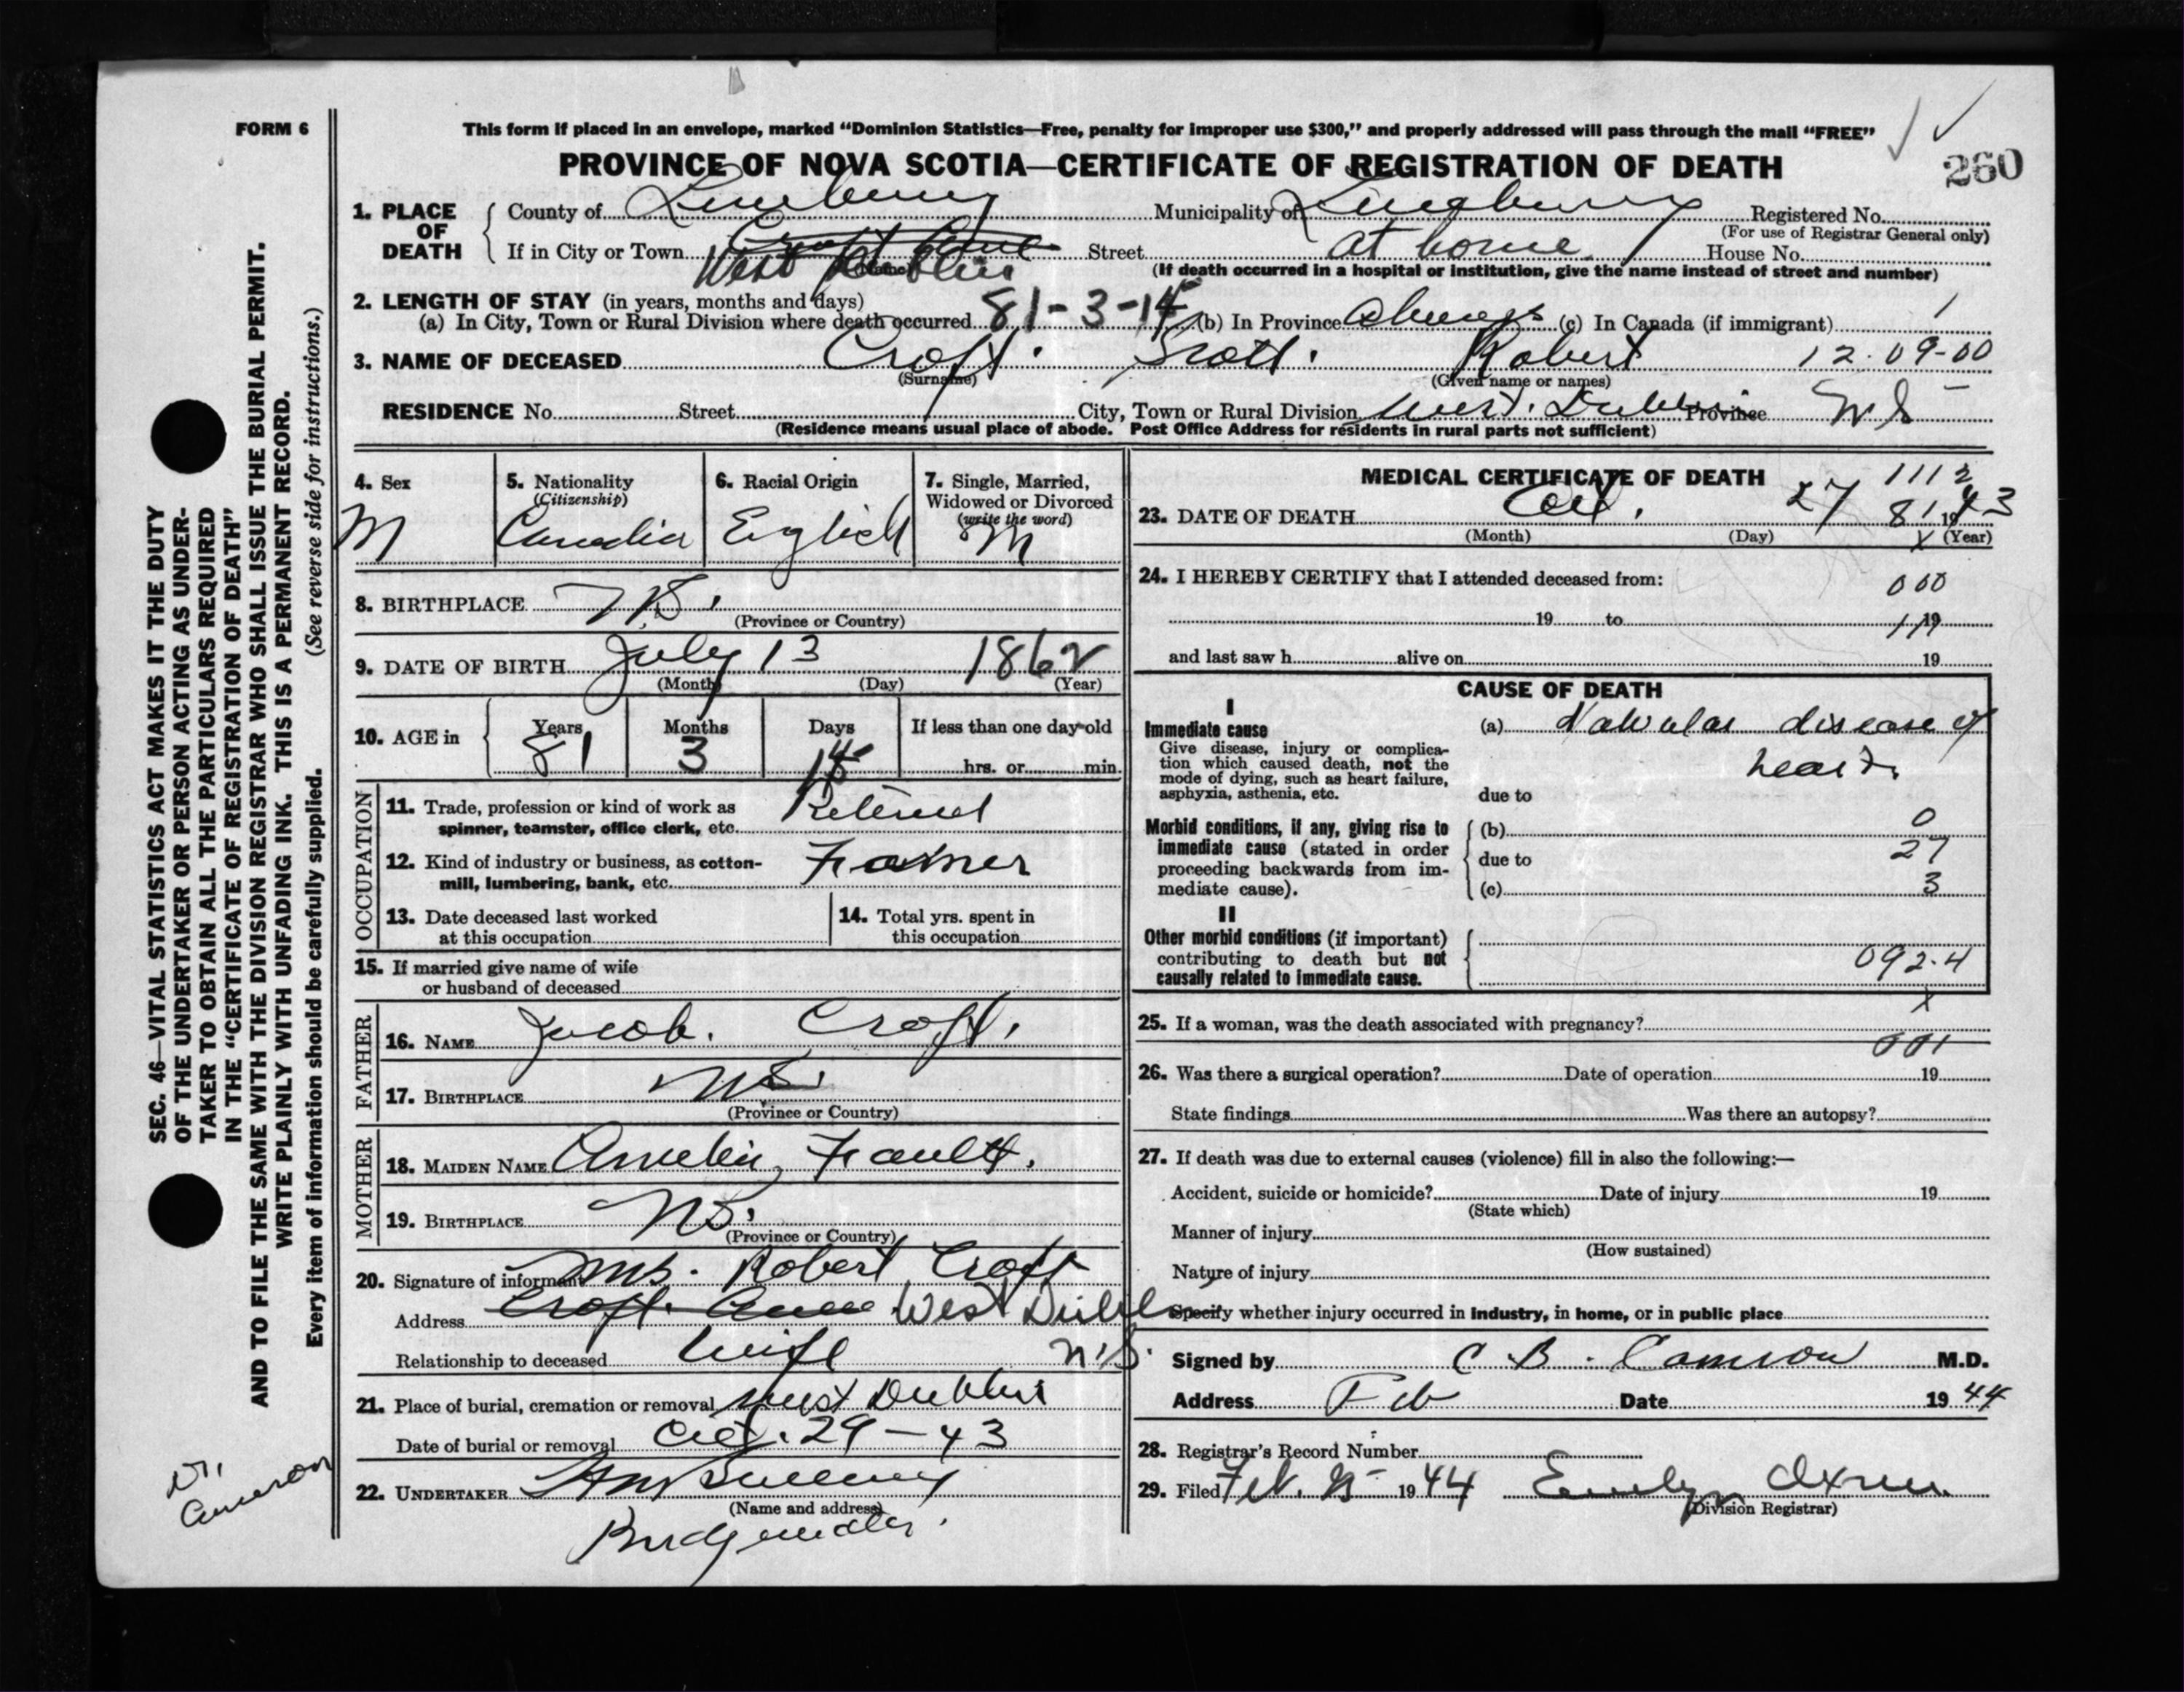 FORM 6
This form if placed in an envelope, marked “Dominion Statistics—Free, penalty for improper use $300,” and properly addressed will pass through the mail “FREE”
PROVINCE OF NOVA SCOTIA—CERTIFICATE OF REGISTRATION OF DEATH
260
1. PLACE OF DEATH
County of Lunenburg Municipality of Lunenburg Registered No.
(For use of Registrar General only)
If in City or Town West Dublin Street at home House No.
(Name)
(If death occurred in a hospital or institution, give the name instead of street and number)
2. LENGTH OF STAY (in years, months and days)
(a) In City, Town or Rural Division where death occurred 81-3-14 (b) In Province Always (c) In Canada (if immigrant) 1
3. NAME OF DECEASED Croft. Scott. Robert 12.09-00
(Surname) (Given name or names)
RESIDENCE No. Street City, Town or Rural Division West. Dublin Province N S
(Residence means usual place of abode. Post Office Address for residents in rural parts not sufficient)
4. Sex M
5. Nationality (Citizenship) Canadian
6. Racial Origin English
7. Single, Married, Widowed or Divorced (write the word) M
8. BIRTHPLACE N.S.
(Province or Country)
9. DATE OF BIRTH July 13 1862
(Month) (Day) (Year)
10. AGE in Years 81 Months 3 Days 14 If less than one day old
hrs. or min.
OCCUPATION
11. Trade, profession or kind of work as spinner, teamster, office clerk, etc. Retired
12. Kind of industry or business, as cotton-mill, lumbering, bank, etc. Farmer
13. Date deceased last worked at this occupation
14. Total yrs. spent in this occupation
15. If married give name of wife or husband of deceased
FATHER
16. NAME Jacob. Croft.
17. BIRTHPLACE N.S.
(Province or Country)
MOTHER
18. MAIDEN NAME Amelia
19. BIRTHPLACE N.S.
(Province or Country)
20. Signature of informant Mrs. Robert Croft
Address West Dublin
N.S.
Relationship to deceased Wife
21. Place of burial, cremation or removal West Dublin
Date of burial or removal Oct. 29-43
22. UNDERTAKER Sweeny
(Name and address)
Bridgewater.
MEDICAL CERTIFICATE OF DEATH
1112
23. DATE OF DEATH Oct. 27 81 1943
(Month) (Day) (Year)
X
24. I HEREBY CERTIFY that I attended deceased from:
000
19 to 19
111
and last saw h alive on 19
CAUSE OF DEATH
I
Immediate cause
Give disease, injury or complication which caused death, not the mode of dying, such as heart failure, asphyxia, asthenia, etc.
(a) Valvular disease of
heart.
due to
Morbid conditions, if any, giving rise to immediate cause (stated in order proceeding backwards from immediate cause).
(b) 0
due to 27
(c) 3
II
Other morbid conditions (if important) contributing to death but not causally related to immediate cause.
092.4
X
25. If a woman, was the death associated with pregnancy?
001
26. Was there a surgical operation? Date of operation 19
State findings Was there an autopsy?
27. If death was due to external causes (violence) fill in also the following:—
Accident, suicide or homicide? Date of injury 19
(State which)
Manner of injury
(How sustained)
Nature of injury
Specify whether injury occurred in industry, in home, or in public place
Signed by C B. Cameron M.D.
Address Feb Date 1944
28. Registrar's Record Number
29. Filed Feb. 1944 Emelyn
(Division Registrar)
SEC. 46—VITAL STATISTICS ACT MAKES IT THE DUTY
OF THE UNDERTAKER OR PERSON ACTING AS UNDER-
TAKER TO OBTAIN ALL THE PARTICULARS REQUIRED
IN THE “CERTIFICATE OF REGISTRATION OF DEATH”
AND TO FILE THE SAME WITH THE DIVISION REGISTRAR WHO SHALL ISSUE THE BURIAL PERMIT.
WRITE PLAINLY WITH UNFADING INK. THIS IS A PERMANENT RECORD.
Every item of information should be carefully supplied. (See reverse side for instructions.)
Dr.
Cameron